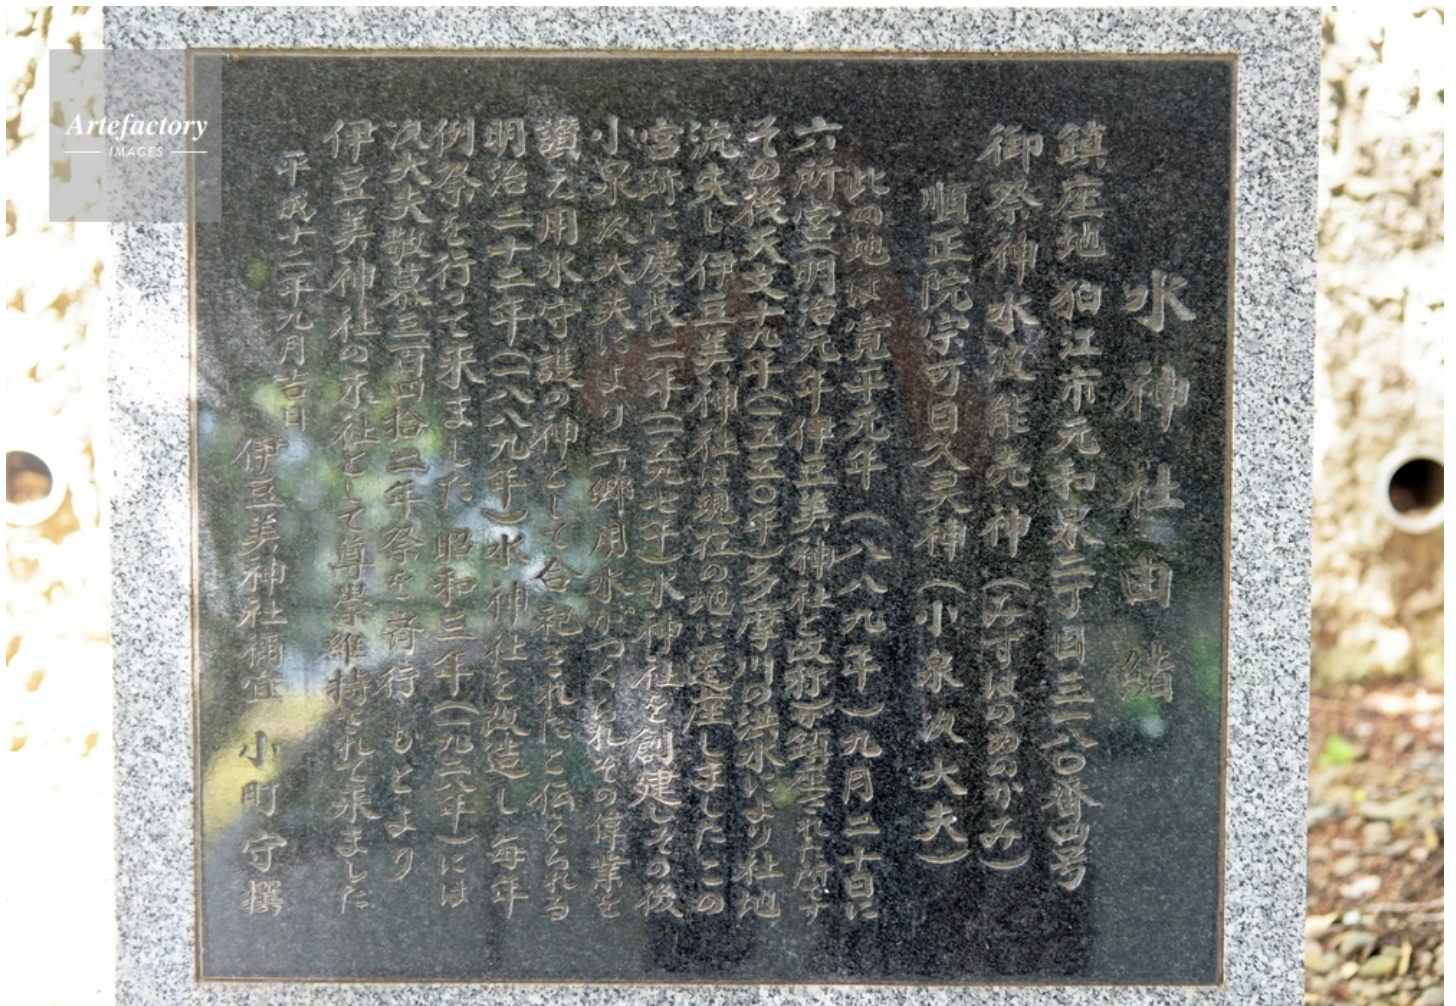 水神社由緒
鎮座地 狛江市元和泉二丁目三一八〇番四号
御祭神水波能売神(みずはのめのかみ)
順正院宗可日久霊神(小泉次大夫)
此の地は寛平元年(八八九年)九月二十日に
六所宮(明治元年伊豆美神社と改称)が鎮座された所です
その後天文十九年(一五五〇年)多摩川の洪水により社地
流失し伊豆美神社は現在の地に遷座しましたこの
宮跡に慶長二年(一五九七年)水神社を創建しその後
小泉次大夫により六郷用水がつくられその偉業を
讃え用水守護の神として合祀されたと伝えられる
明治二十二年(一八八九年)水神社を改造し毎年
例祭を行って来ました 昭和三年(一九二八年)には
次大夫敬慕三百四拾二年祭を斎行 もとより
伊豆美神社の末社として尊崇維持されて来ました
平成十二年九月吉日
伊豆美神社禰宜 小町守撰
Artefactory
IMAGES